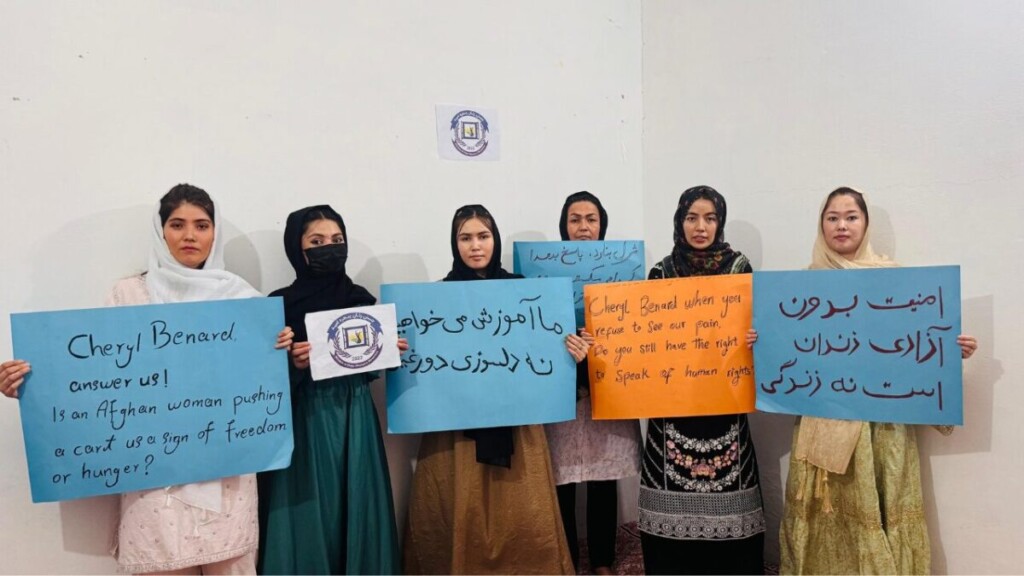 Cheryl Benard,
answer us!
Is an Afghan woman pushing
a cart us a sign of freedom
or hunger?
ما آموزش می خواهیم
نه دلسوزی
شرل بنارد، پاسخ بدهد!
Cheryl Benard when you
refuse to See our pain,
Do you still have the right
to Speak of human rights
امنیت بدون
آزادی زندان
است نه زندگی